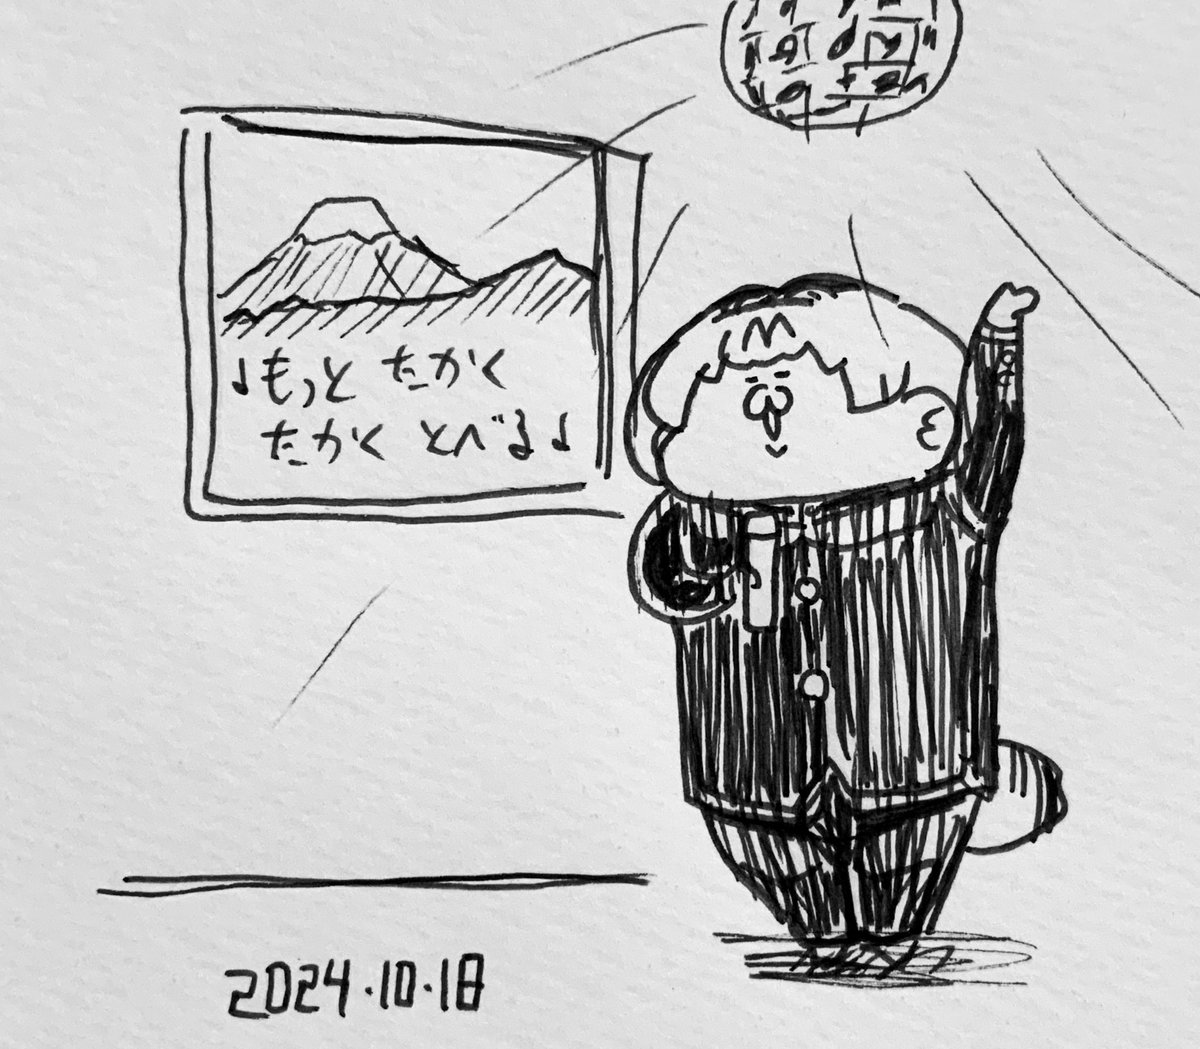 ♩もっと たかく
たかく とべる♩
2024.10.18